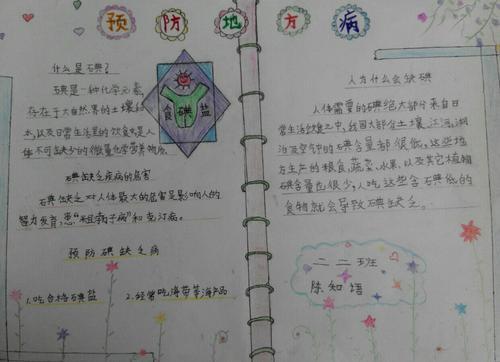 预防地方病
什么是碘？
碘是一种化学元素,
存在于大自然害的土壤和
水,以及日常生活里的饮食中,是人
体不可缺少的微量化学营养物质
食碘盐
碘缺乏疾病的危害
碘缺乏对人体最大的危害是影响人的
智力发育,患“粗脖子病”和克汀病。
预防碘缺乏病
1.吃合格碘盐
2.经常吃海带等海产品
人为什么会缺碘
人体需要的碘给大部分来自日
常生活饮食之中,我国大部分土壤、江河、湖
泊及空气中的碘含量都很低。这些地
方生产的粮食、蔬菜、水果,以及其它植物
碘含量应很少,人吃这些含碘低的
食物就会导致碘缺乏。
二二班
陈知语